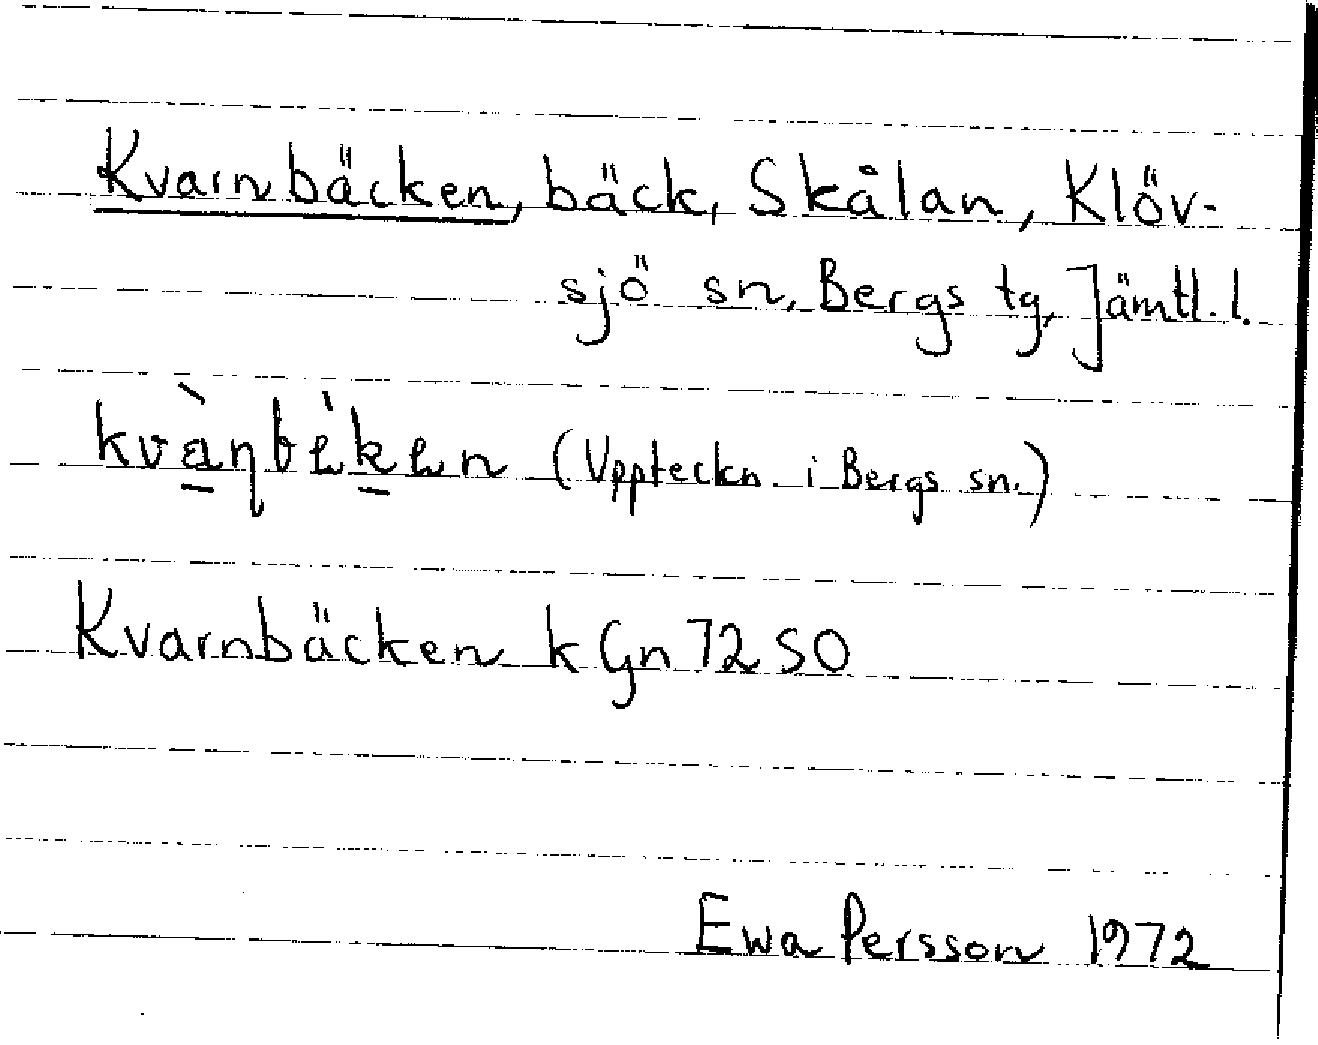 Kvarnbäcken, bäck, Skålan, Klöv-
sjö sn, Bergs tg, Jämtl. l.
(Uppteckn. i Bergs sn.)
Kvarnbäcken k Gn 72 SO
Ewa Persson 1972